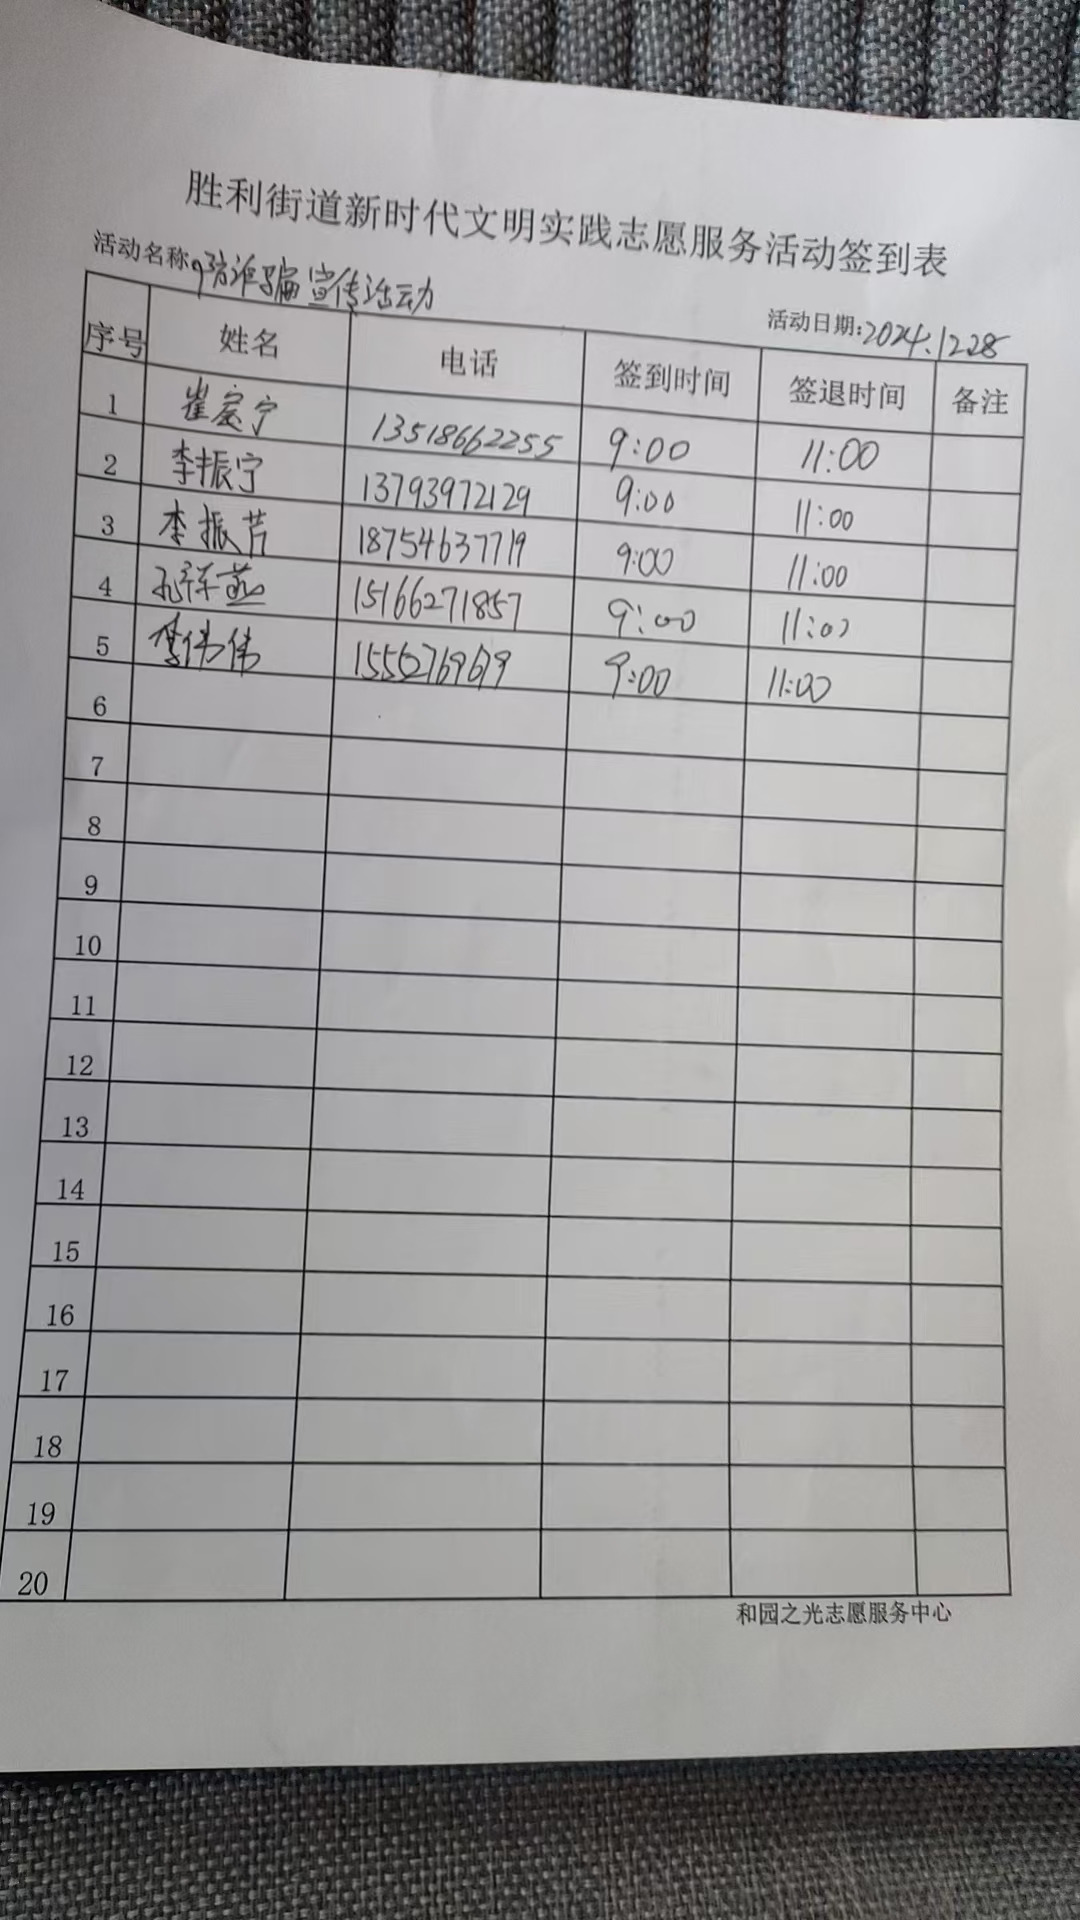 胜利街道新时代文明实践志愿服务活动签到表
活动名称:防诈骗宣传活动
活动日期:2024.12.28
序号 姓名 电话 签到时间 签退时间 备注
1 崔宸宁 13518662255 9:00 11:00
2 李振宁 13793972129 9:00 11:00
3 李振芳 18754637719 9:00 11:00
4 孔祥燕 15166271857 9:00 11:00
5 李伟伟 15552769679 9:00 11:00
6
7
8
9
10
11
12
13
14
15
16
17
18
19
20
和园之光志愿服务中心